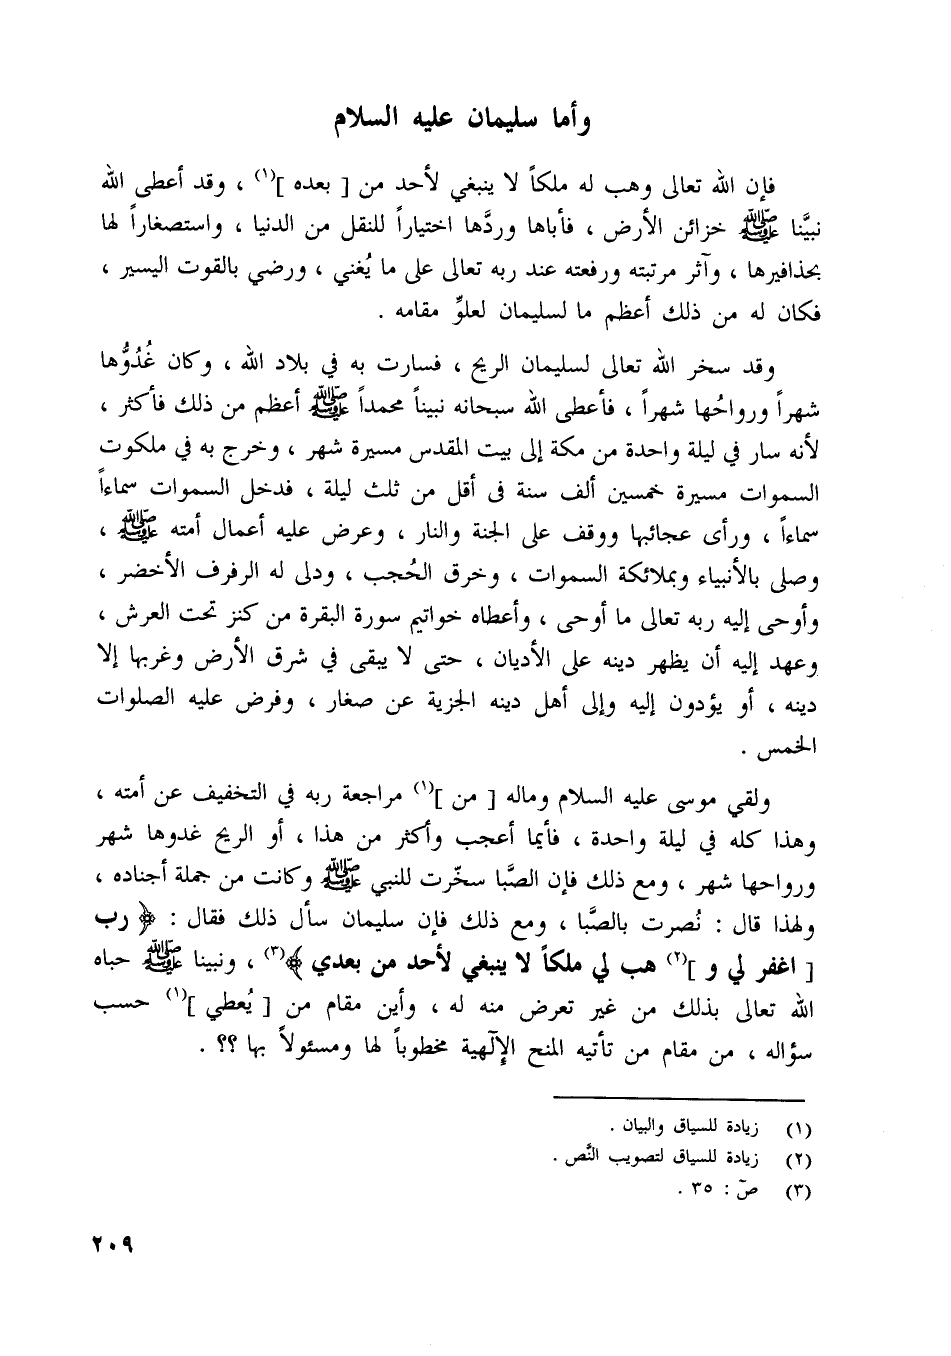 وأما سليمان عليه السلام
فإن الله تعالى وهب له ملكاً لا ينبغي لأحد من [ بعده ](١) ، وقد أعطى الله
نبيَّنا ﷺ خزائن الأرض ، فأباها وردَّها اختياراً للنقل من الدنيا ، واستصغاراً لها
بحذافيرها ، وآثر مرتبته ورفعته عند ربه تعالى على ما يُغني ، ورضي بالقوت اليسير ،
فكان له من ذلك أعظم ما لسليمان لعلوٍّ مقامه .
وقد سخر الله تعالى لسليمان الريح ، فسارت به في بلاد الله ، وكان غُدُوُّها
شهراً ورواحُها شهراً ، فأعطى الله سبحانه نبيناً محمداً ﷺ أعظم من ذلك فأكثر ،
لأنه سار في ليلة واحدة من مكة إلى بيت المقدس مسيرة شهر ، وخرج به في ملكوت
السموات مسيرة خمسين ألف سنة فى أقل من ثلث ليلة ، فدخل السموات سماءاً
سماءاً ، ورأى عجائبها ووقف على الجنة والنار ، وعرض عليه أعمال أمته ﷺ ،
وصلى بالأنبياء وبملائكة السموات ، وخرق الحُجب ، ودلى له الرفرف الأخضر ،
وأوحى إليه ربه تعالى ما أوحى ، وأعطاه خواتيم سورة البقرة من كنز تحت العرش ،
وعهد إليه أن يظهر دينه على الأديان ، حتى لا يبقى في شرق الأرض وغربها إلا
دينه ، أو يؤدون إليه وإلى أهل دينه الجزية عن صغار ، وفرض عليه الصلوات
الخمس .
ولقي موسى عليه السلام وماله [ من ](١) مراجعة ربه في التخفيف عن أمته ،
وهذا كله في ليلة واحدة ، فأيما أعجب وأكثر من هذا ، أو الريح غدوها شهر
ورواحها شهر ، ومع ذلك فإن الصَّبا سخّرت للنبي ﷺ وكانت من جملة أجناده ،
ولهذا قال : نُصرت بالصَّبا ، ومع ذلك فإن سليمان سأل ذلك فقال : ﴿ رب
[ اغفر لي و ](٢) هب لي ملكاً لا ينبغي لأحد من بعدي ﴾(٣) ، ونبينا ﷺ حباه
الله تعالى بذلك من غير تعرض منه له ، وأين مقام من [ يُعطي ](١) حسب
سؤاله ، من مقام من تأتيه المنح الإلٓهية مخطوباً لها ومسئولاً بها ؟؟ .
(١) زيادة للسياق والبيان .
(٢) زيادة للسياق لتصويب النَّص .
(٣) صٓ : ٣٥ .
٢٠٩